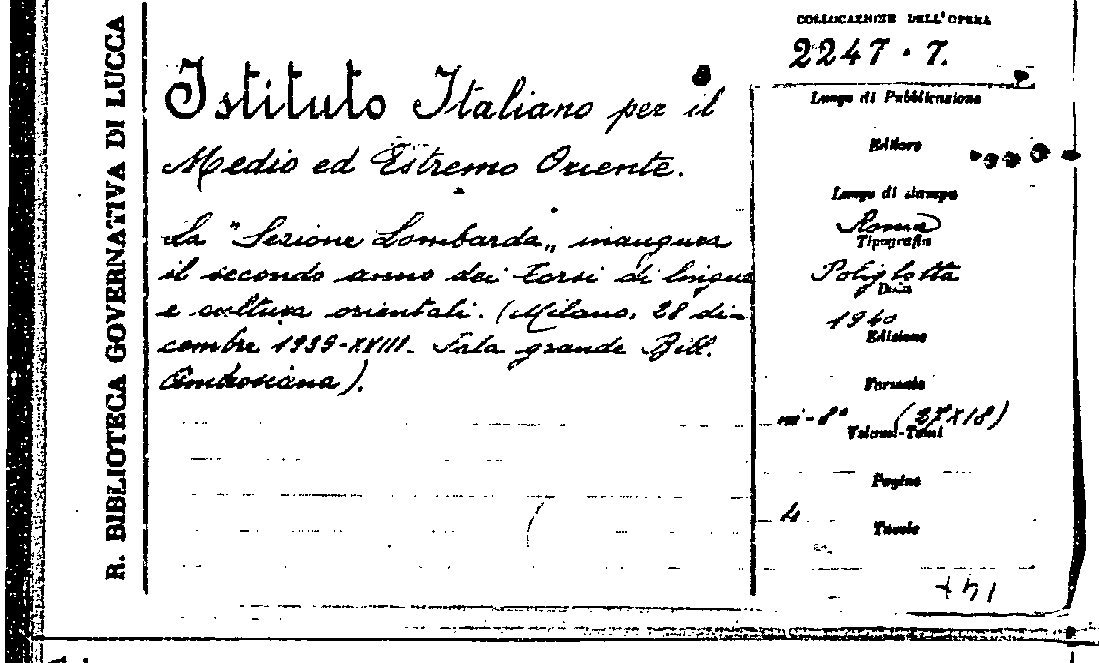 R. BIBLIOTECA GOVERNATIVA DI LUCCA
Istituto Italiano per il
Medio ed Estremo Oriente.
La "Sezione Lombarda„ inaugura
il secondo anno dei Corsi di lingue
e cultura orientali. (Milano, 28 di-
cembre 1939-XVIII. Sala grande Bibl.
Ambrosiana).
COLLOCAZIONE DELL'OPERA
2247.7.
Luogo di Pubblicazione
Editore
Luogo di stampa
Roma
Tipografia
Poliglotta
Data
1940
Edizione
Formato
in-8° (27x18)
Volumi-Tomi
Pagine
4
Tavole